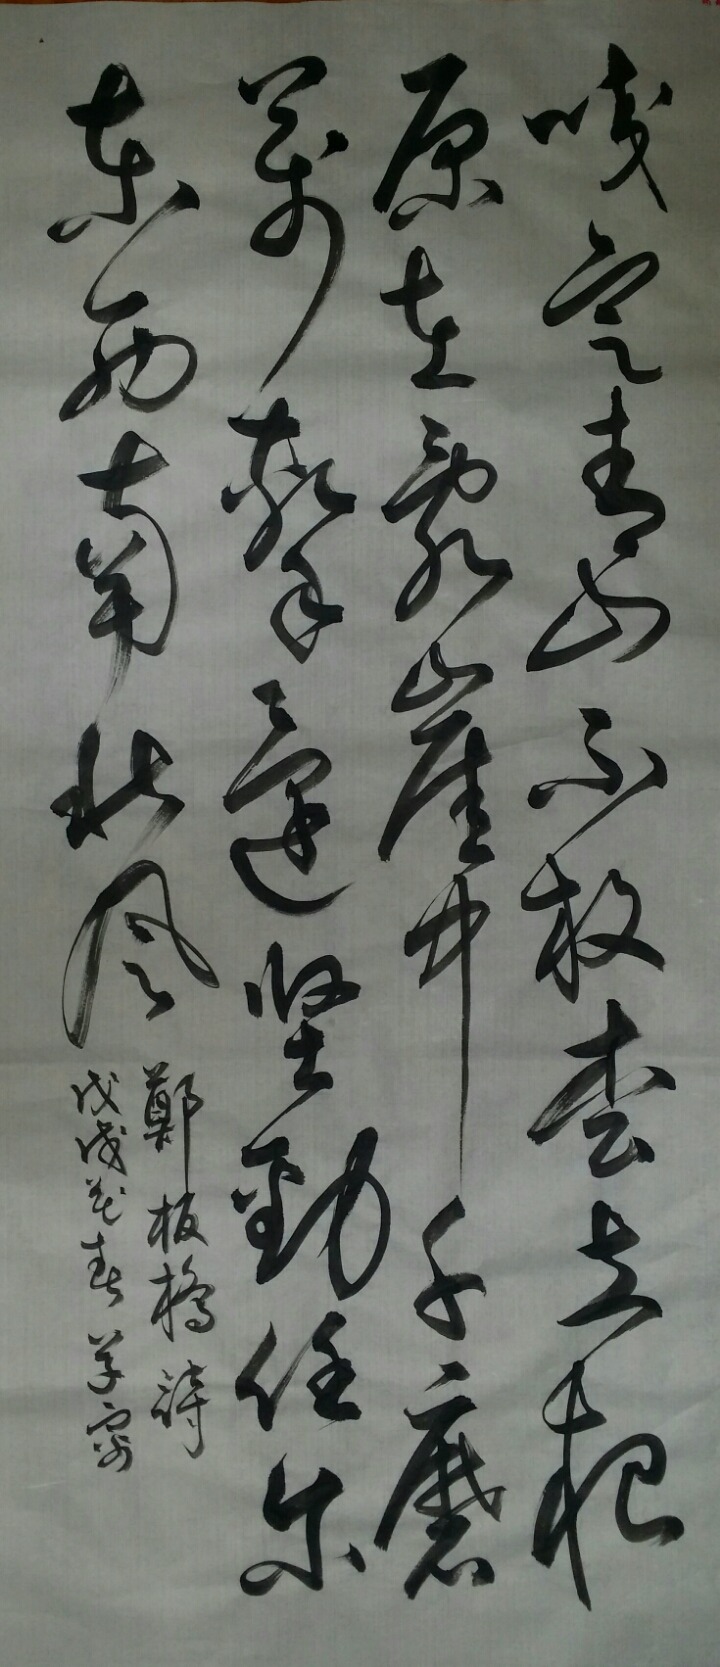 咬定青山不放松立根
原在乱崖中千磨
万击还坚劲任尔
东西南北风
鄭板橋詩
戊戌